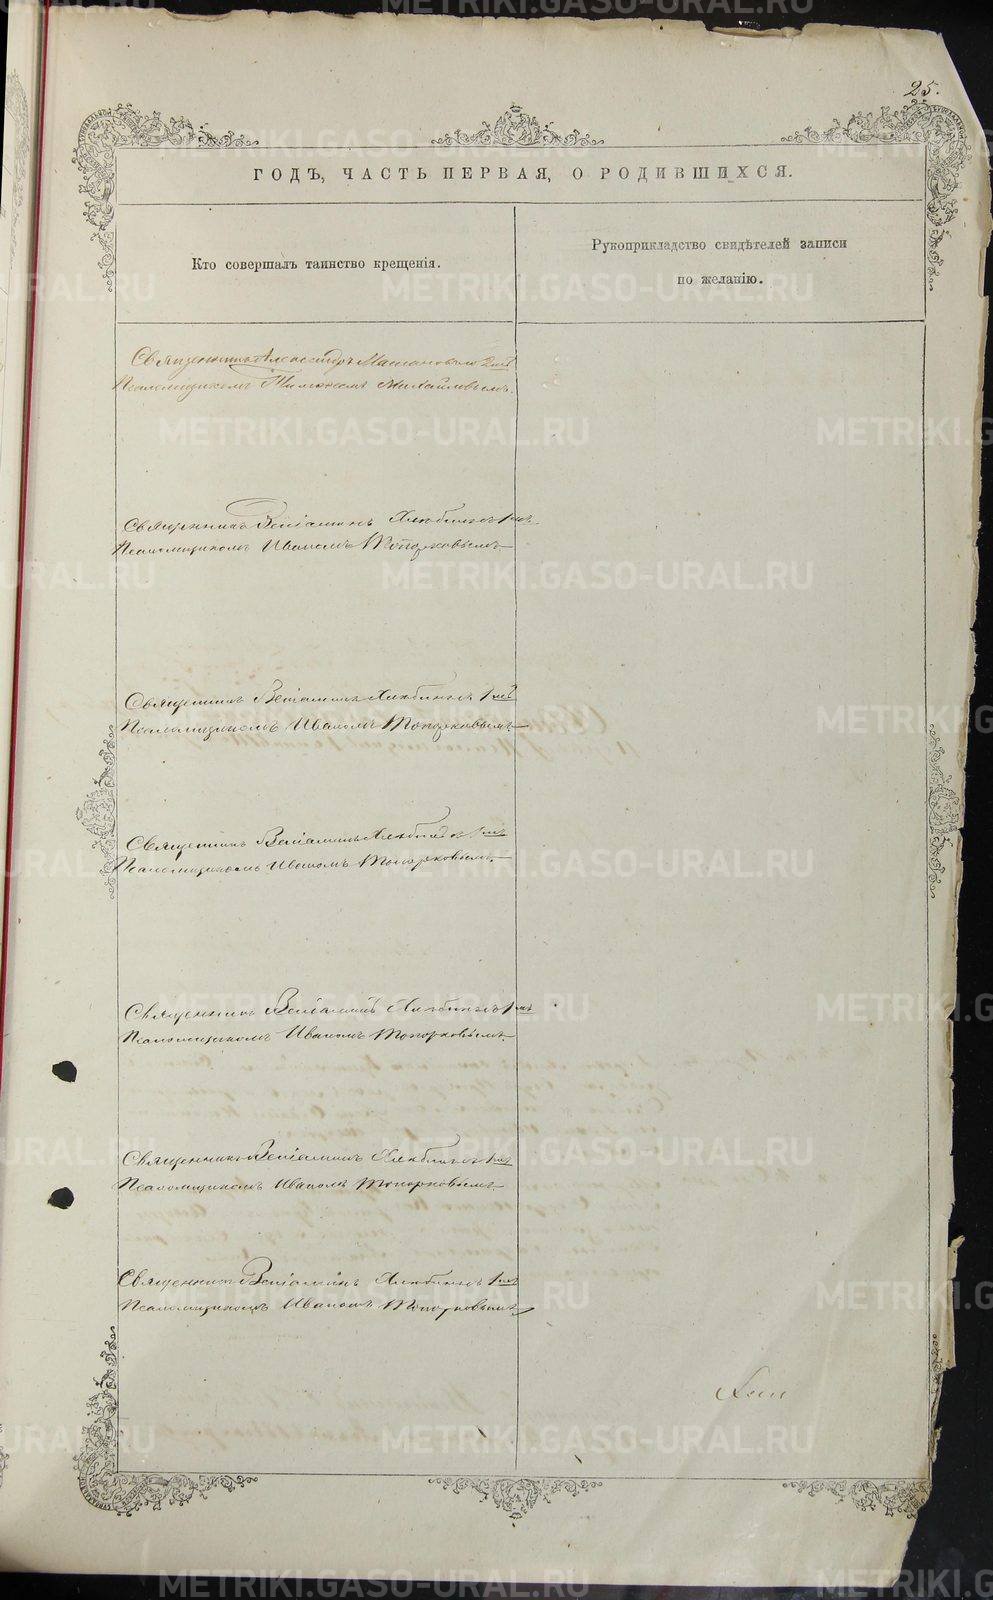 25.
ГОДЪ, ЧАСТЬ ПЕРВАЯ, О РОДИВШИХСЯ.
Кто совершалъ таинство крещенія.
Рукоприкладство свидѣтелей записи
по желанію.
Священникъ Александръ
Псаломщикомъ Михайловымъ.
Священникъ Веніаминъ Хлюбинъ съ
Псаломщикомъ Иваномъ Топорковымъ
Священникъ Веніаминъ Хлюбинъ съ
Псаломщикомъ Иваномъ Топорковымъ
Священникъ Веніаминъ Хлюбинъ съ
Псаломщикомъ Иваномъ Топорковымъ
Священникъ Веніаминъ Хлюбинъ съ
Псаломщикомъ Иваномъ Топорковымъ
Священникъ Веніаминъ Хлюбинъ съ
Псаломщикомъ Иваномъ Топорковымъ
Священникъ Веніаминъ Хлюбинъ съ
Псаломщикомъ Иваномъ Топорковымъ
METRIKI.GASO-URAL.RU